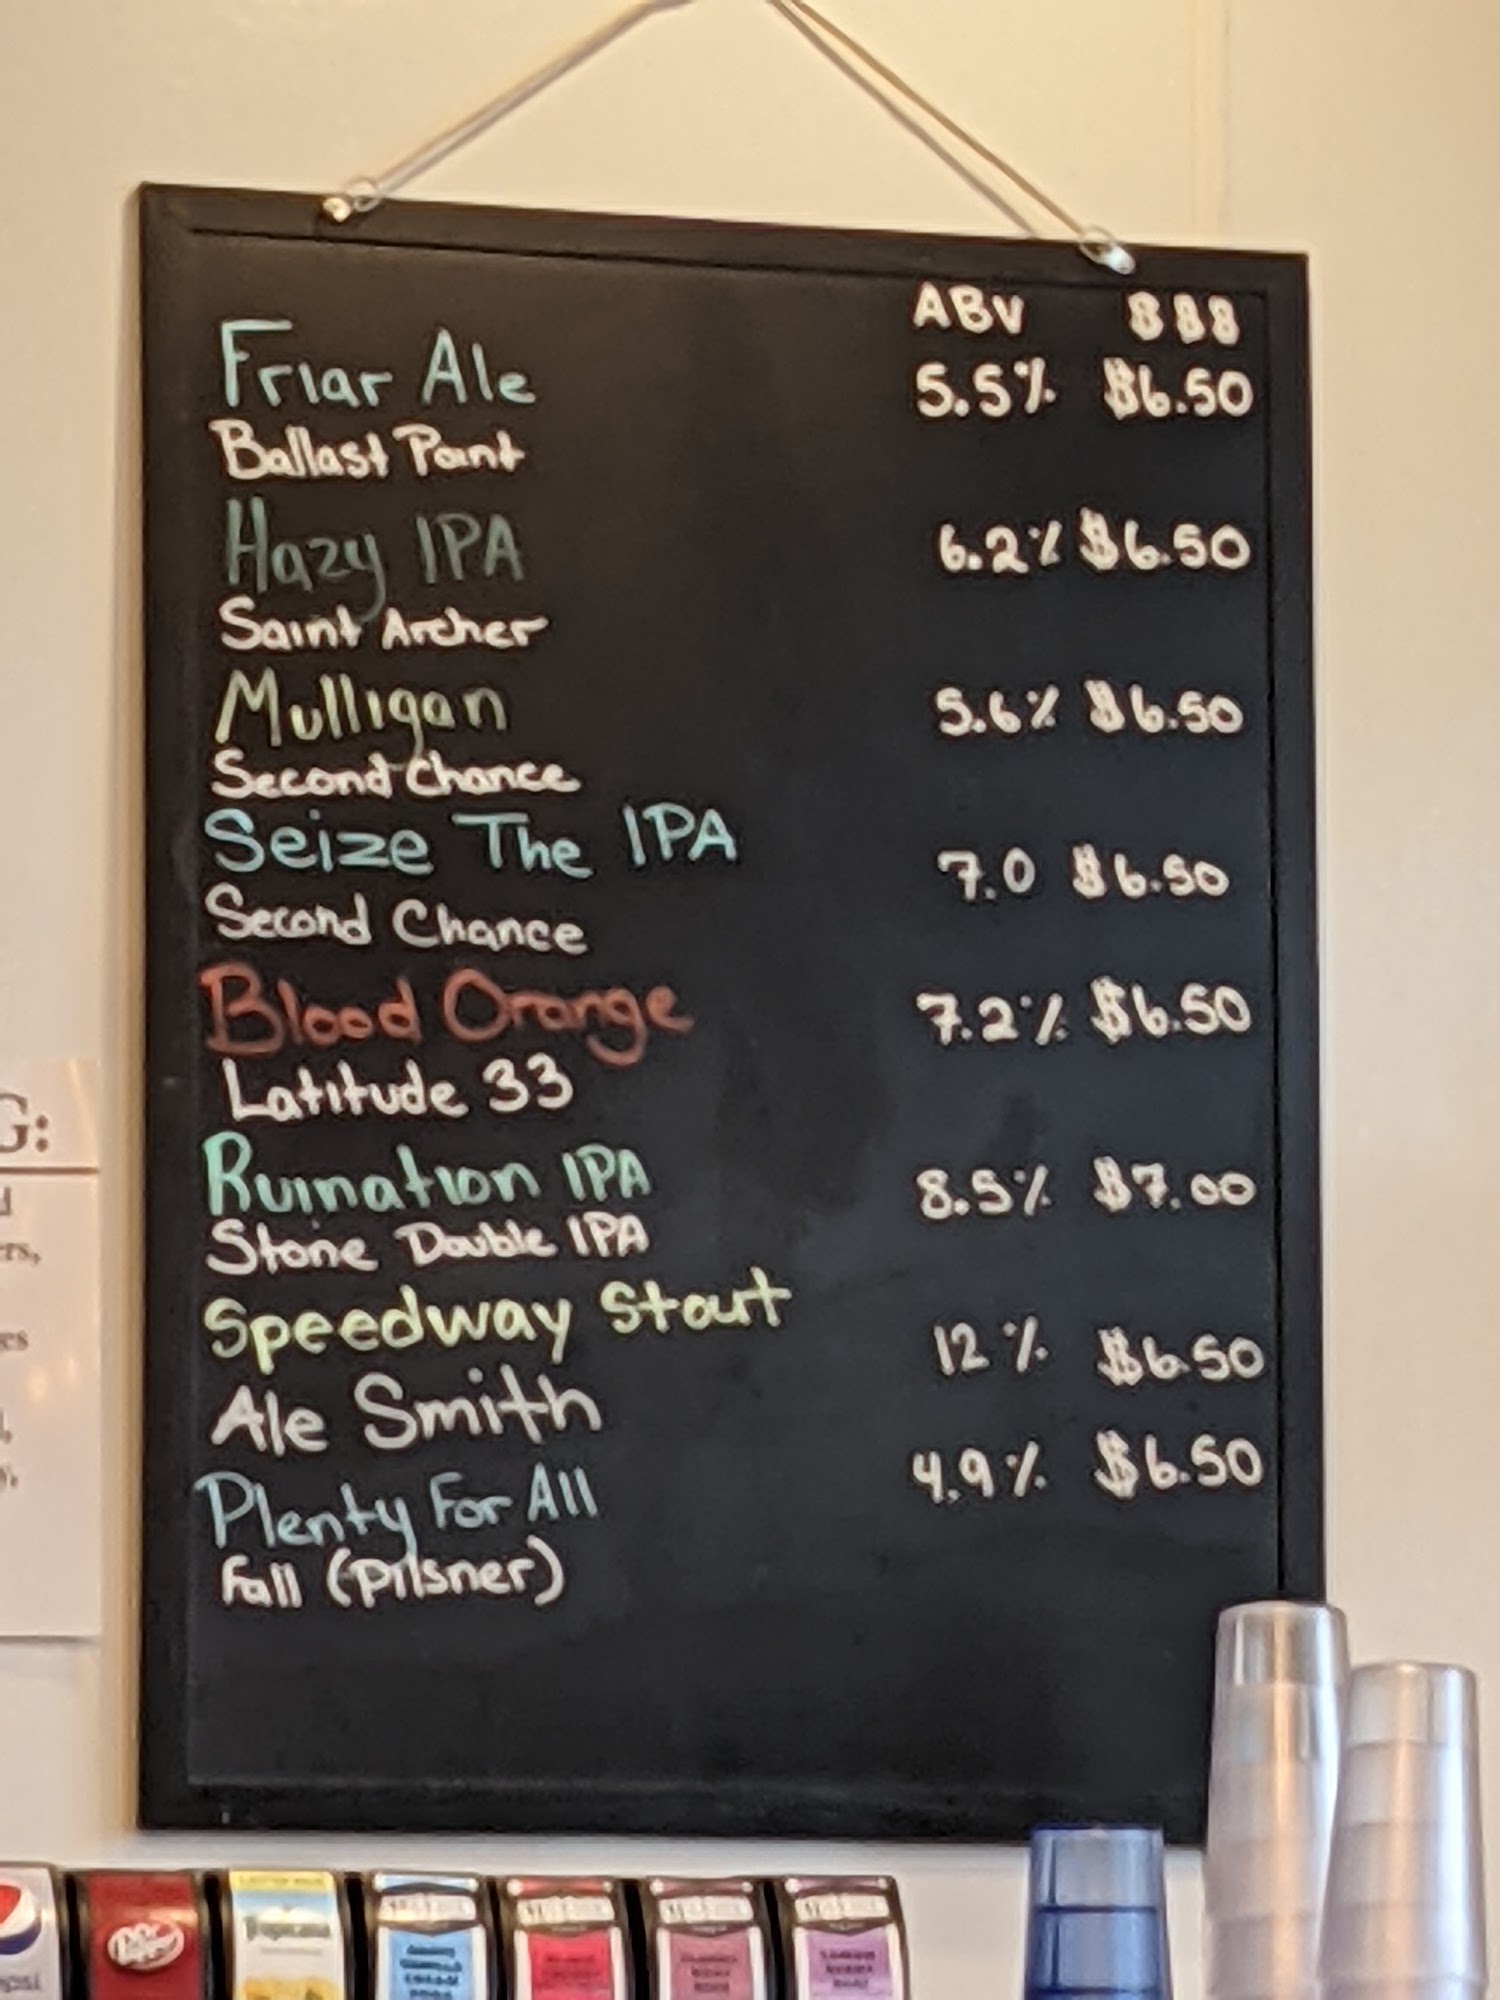 ABV $$$
Friar Ale 5.5% $6.50
Ballast Point
Hazy IPA 6.2% $6.50
Saint Archer
Mulligan 5.6% $6.50
Second Chance
Seize The IPA 7.0 $6.50
Second Chance
Blood Orange 7.2% $6.50
Latitude 33
Ruination IPA 8.5% $7.00
Stone Double IPA
Speedway Stout 12% $6.50
Ale Smith
Plenty For All 4.9% $6.50
Fall (Pilsner)
G:
ers,
es
Dr Pepper
Tropicana